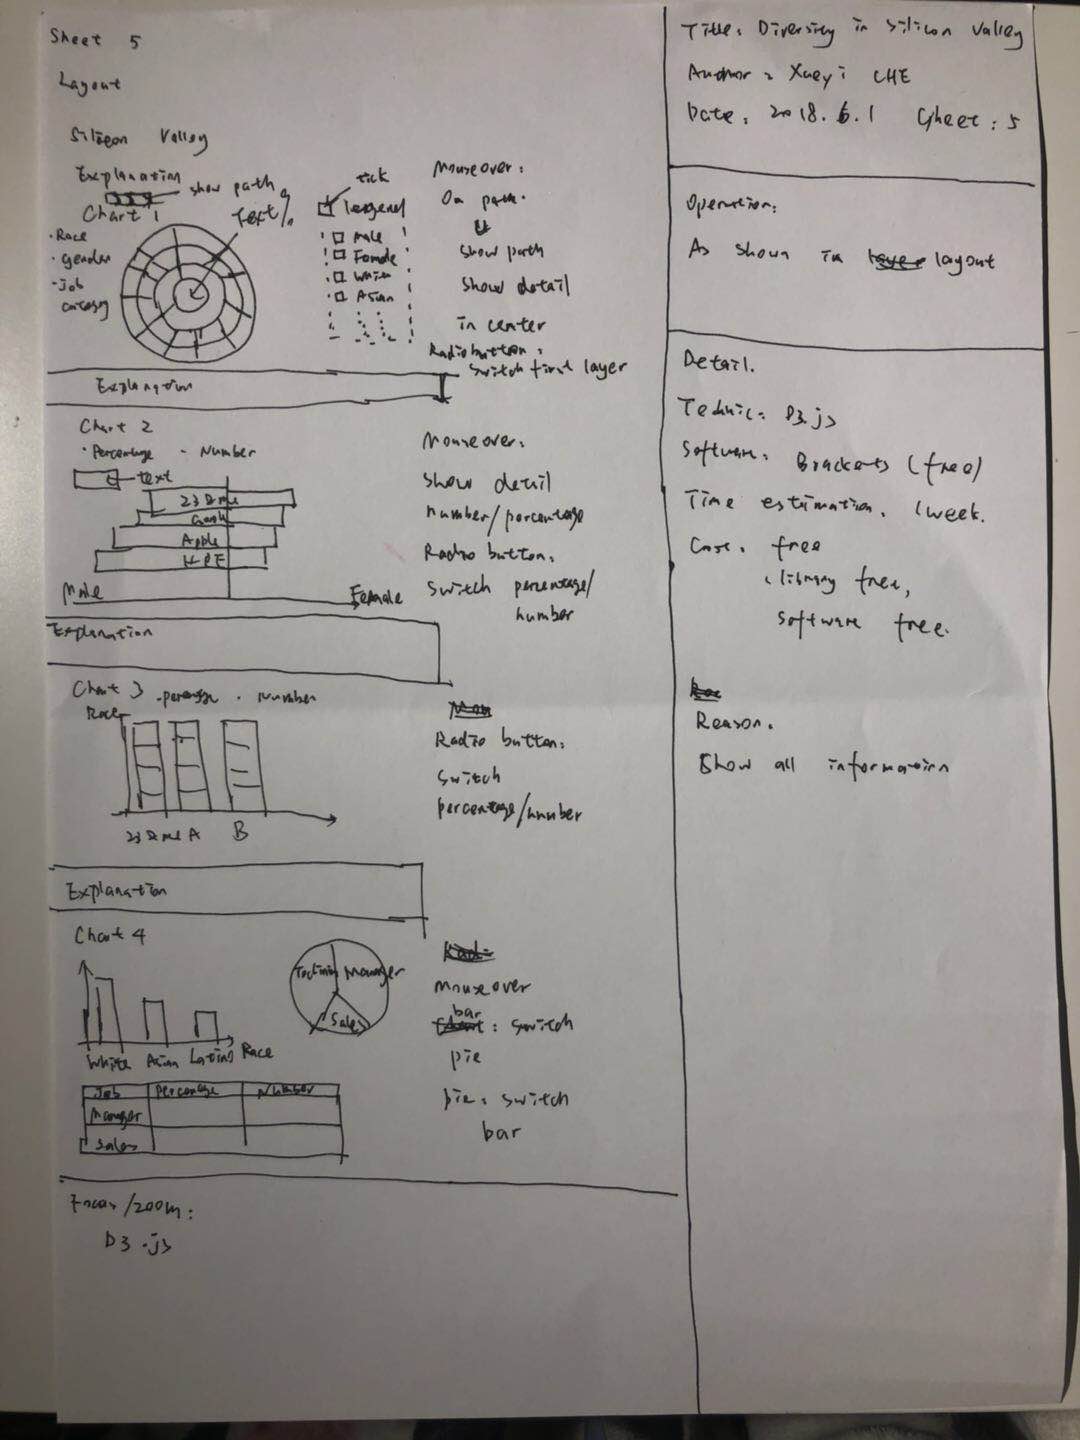 Sheet 5
Layout
Silicon Valley
Explanation
show path
Chart 1
Text%
· Race
· gender
· Job
category
tick
legend
Male
Female
White
Asian
Mouseover:
On path.
show path
show detail
in center
Radio button:
Switch first layer
Explanation
Chart 2
· Percentage · Number
text
23&me
Apple
HPE
Male
Female
Mouseover:
Show detail
number/percentage
Radio button:
Switch percentage/
number
Explanation
Chart 3 · Number
Race
23&me A B
Radio button:
Switch
percentage/number
Explanation
Chart 4
White Asian Latino Race
Manager
Sales
Mouseover
bar
: switch
pie
pie: switch
bar
Job Percentage Number
Manager
Sales
Focus/zoom:
D3.js
Title: Diversity in Silicon Valley
Author: Xueyi CHE
Date: 2018.6.1 Sheet: 5
Operation:
As shown in layout
Detail.
Technic: D3.js
Software: Brackets (free)
Time estimation. 1week.
free
library free,
software free.
Reason.
Show all information